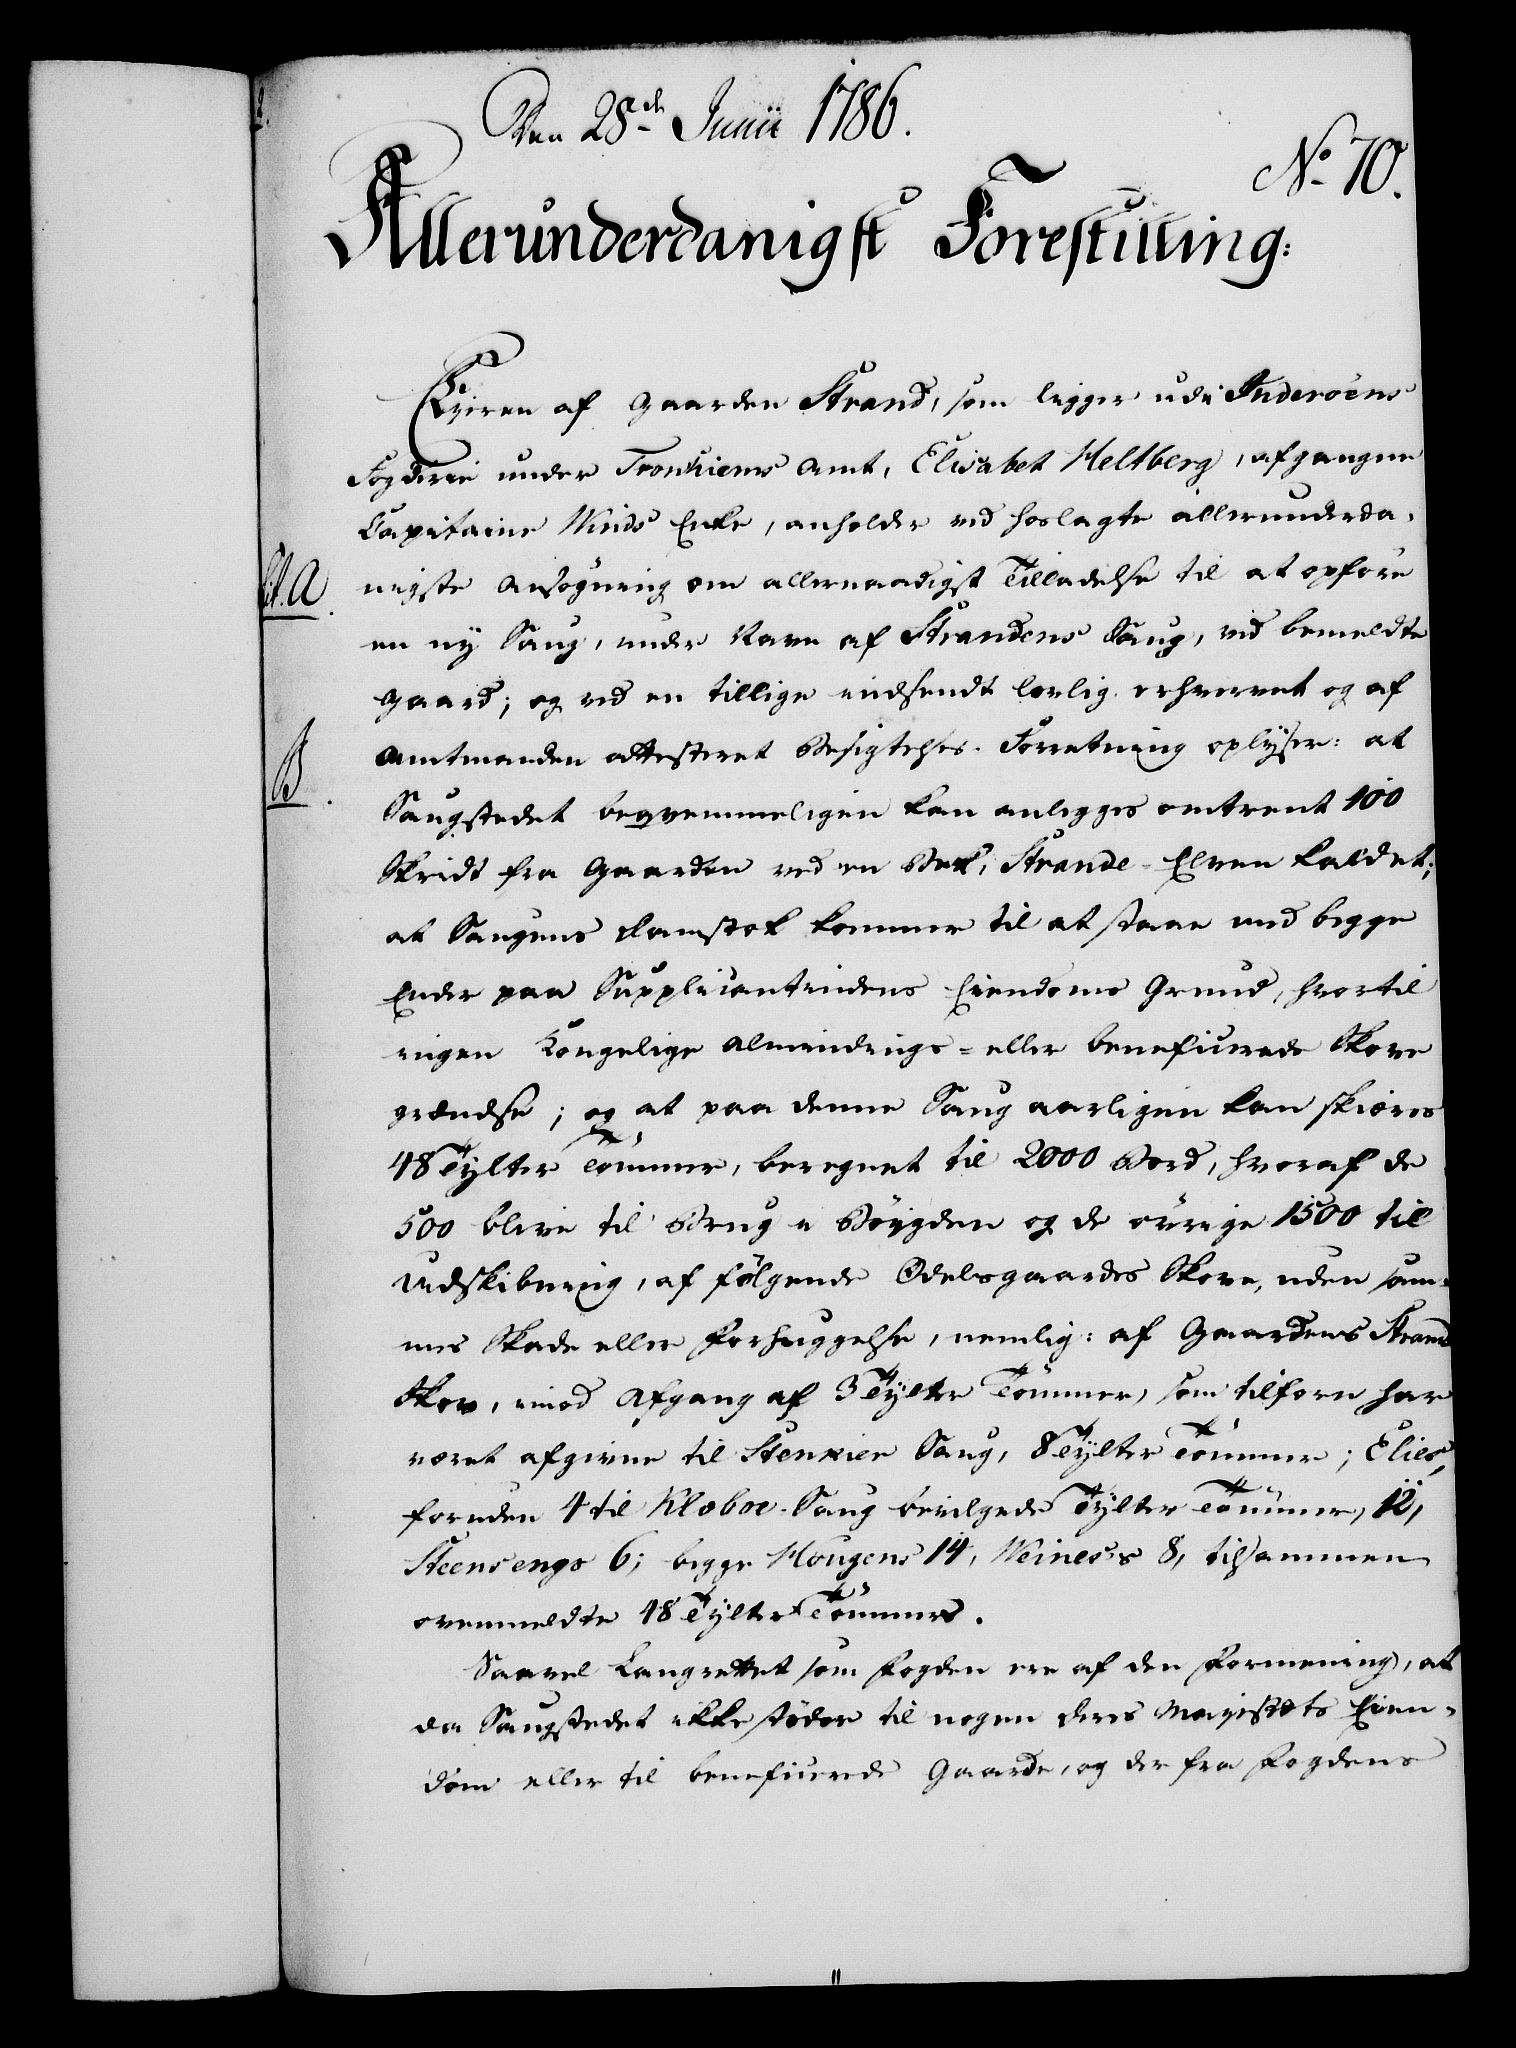 Den 28de Junii 1786.
No 70.
Allerunderdanigst Forestilling:
Eyeren af Gaarden Strand, som ligger udi Inderöens
Fogderie under Tronhiems Amt, Elisabet Heltberg, afgangne
Capitaine Winds Enke, anholder ved hoslagte allerunderda-
Lit. A.
nigste Ansögning om allernaadigst Tilladelse til at opföre
en ny Saug, under Navn af Strandens Saug, ved bemeldte
Gaard; og ved en tillige indsendt lovlig erhvervet og af
B.
Amtmanden attesteret Besigtelses-Forretning oplyser: at
Saugstedet beqvemmeligen kan anlegges omtrent 100
Skridt fra Gaarden ved en Bek, Strande-Elven kaldet;
at Saugens Damstok kommer til at staae med begge
Ender paa Supplicantindens Eiendoms Grund, hvortil
ingen Kongelige Almindings- eller beneficerede Skove
grændse; og at paa denne Saug aarligen kan skiæres
48 Tylter Tömmer, beregnet til 2000 Bord, hvoraf de
500 blive til Brug i Böygden og de övrige 1500 til
Udskibning, af fölgende Odelsgaardes Skove, uden sam-
mes Skade eller Forhuggelse, nemlig: af Gaardens Strand
Skov, imod Afgang af 3 Tylter Tömmer, som tilforn har
været afgivne til Stenkier Saug, 8 Tylter Tömmer; Elies,
foruden 4 til Kloboe-Saug bevilgede Tylter Tömmer, 12,
Steensengs 6; begge Hougens 14, Weines's 8, tilsammen
ovenmeldte 48 Tylter Tömmer.
Saavel Laugrettet som Fogden ere af den Formening, at
da Saugstedet ikke stöder til nogen Deres Majestæts Eien-
dom eller til beneficerede Gaarde, og der fra Fogdens